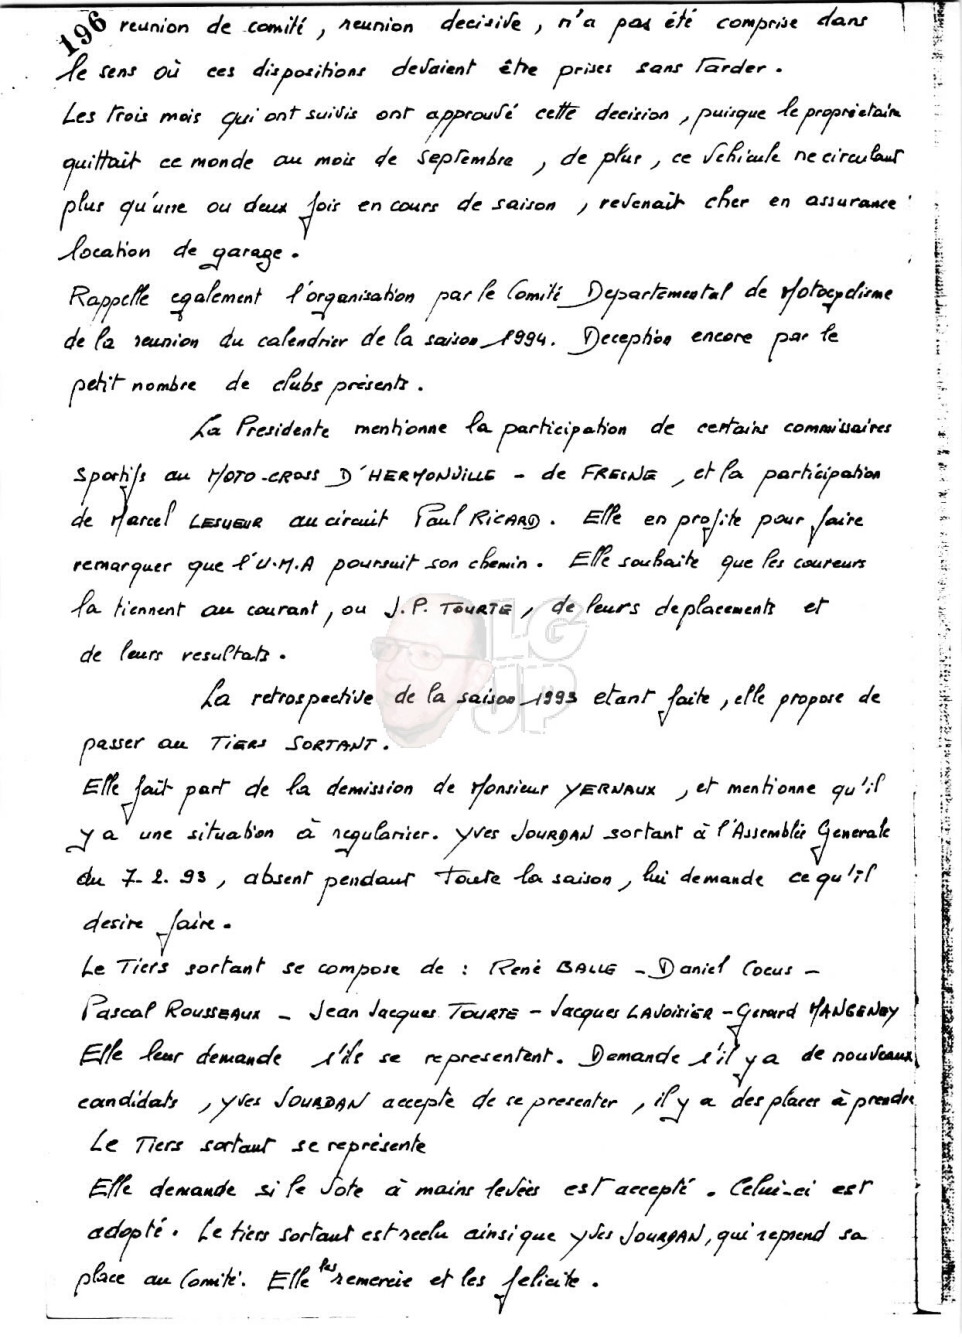 196 reunion de comité, reunion decisive, n'a pas été comprise dans
le sens où ces dispositions devaient être prises sans Tarder.
Les Trois mois qui ont suivis ont approuvé cette decision, puisque le propriétaire
quittait ce monde au mois de Septembre, de plus, ce vehicule ne circulant
plus qu'une ou deux fois en cours de saison, revenait cher en assurance
location de garage.
Rappelle egalement l'organisation par le Comité Departemental de Motocyclisme
de la reunion du calendrier de la saison 1994. Deception encore par le
petit nombre de clubs présents.
La Presidente mentionne la participation de certains commissaires
Sportifs au MOTO-CROSS D'HERMONVILLE - de FRESNE, et la participation
de Marcel LESUEUR au circuit Paul RICARD. Elle en profite pour faire
remarquer que l'U.M.A poursuit son chemin. Elle souhaite que les coureurs
la tiennent au courant, ou J.P. TOURTE, de leurs deplacements et
de leurs resultats.
LG
JP
La retrospective de la saison 1993 etant faite, elle propose de
passer au TIERS SORTANT.
Elle fait part de la demission de Monsieur YERNAUX, et mentionne qu'il
y a une situation à regulariser. Yves JOURDAN sortant à l'Assemblée Generale
du 7-2.93, absent pendant toute la saison, lui demande ce qu'il
desire faire.
Le Tiers sortant se compose de : René BALLE - Daniel Cocus -
Pascal ROUSSEAUX - Jean Jacques TOURTE - Jacques LAVOISIER - Gerard MANGENOY
Elle leur demande s'ils se representent. Demande s'il y a de nouveaux
candidats, Yves JOURDAN accepte de se presenter, il y a des places à prendre
Le Tiers sortant se représente
Elle demande si le Vote à mains levées est accepté. Celui-ci est
adopté. Le tiers sortant est reelu ainsi que Yves JOURDAN, qui reprend sa
place au Comité. Elle les remercie et les felicite.